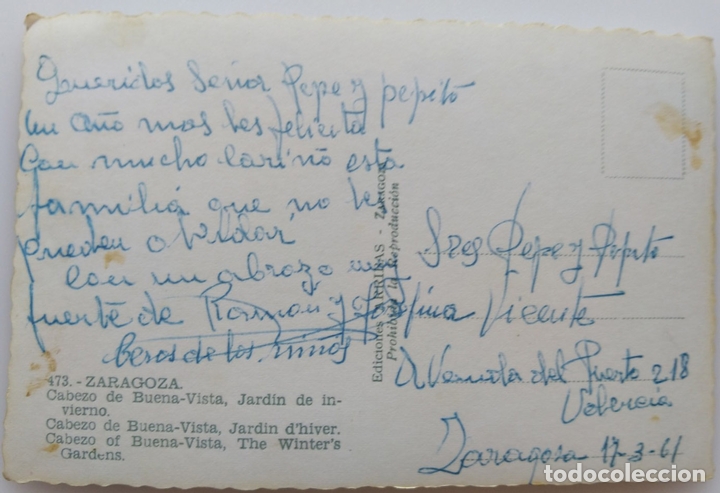 Queridos Señor Pepe y pepito
un año mas les felicita
Con mucho cariño esta
familia que no les
pueden olvidar,
Con un abrazo
fuerte de Ramon y Josefina
besos de los niños
473. - ZARAGOZA.
Cabezo de Buena-Vista, Jardín de in-
vierno.
Cabezo de Buena-Vista, Jardin d'hiver.
Cabezo of Buena-Vista, The Winter's
Gardens.
Ediciones ARRIBAS - ZARAGOZA
Prohibida la Reproducción
Sres Pepe y Pepito
Vicente
Avenida del Puerto 218
Valencia
Zaragoza 17-3-61
todocoleccion
todocoleccion.net